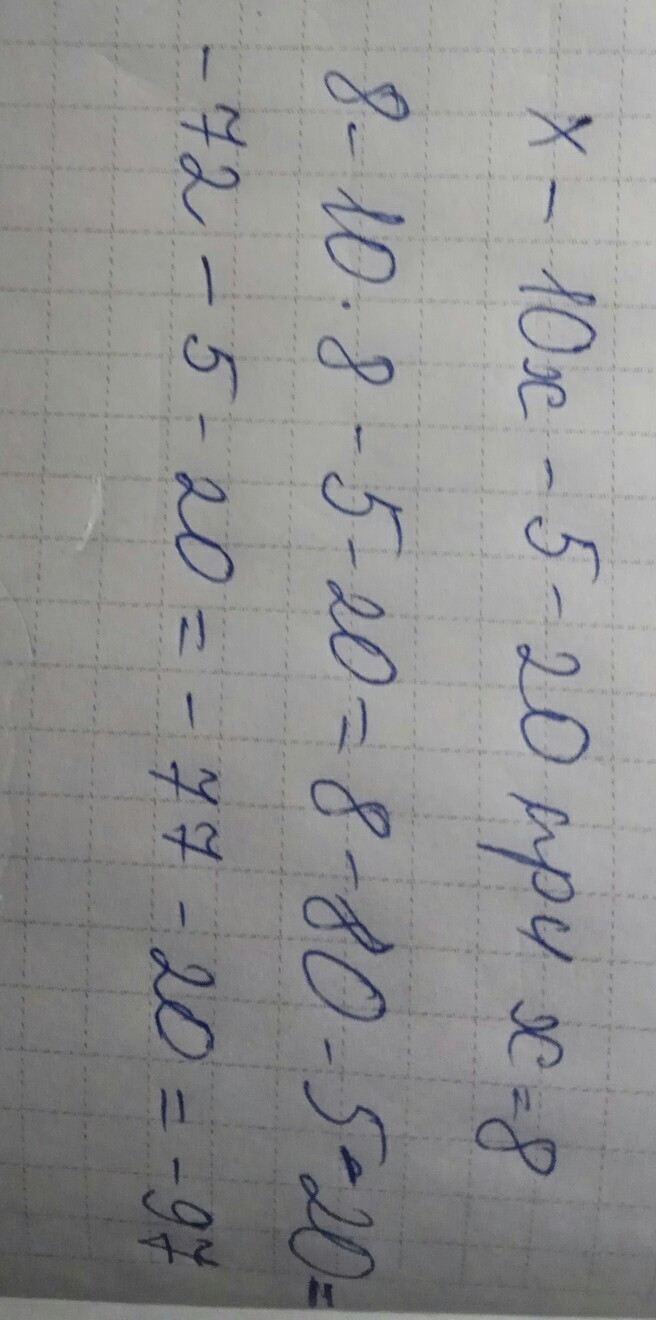 x - 10x - 5 - 20 при x = 8
8 - 10 · 8 - 5 - 20 = 8 - 80 - 5 - 20 =
- 72 - 5 - 20 = - 77 - 20 = - 97